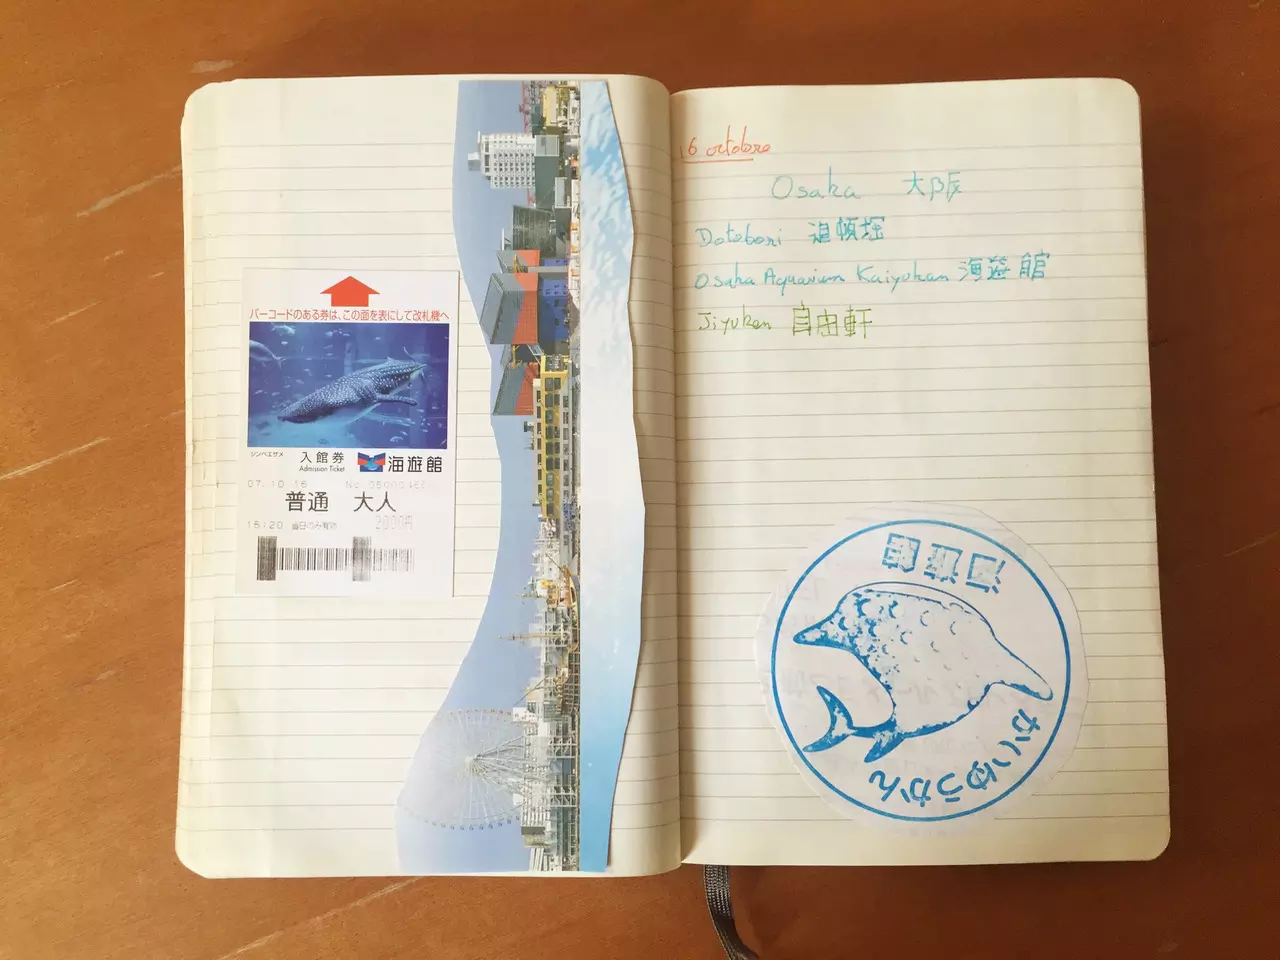 バーコードのある券は、この面を表にして改札機へ
ジンベエザメ
入館券
Admission Ticket
海遊館
07.10.16
普通 大人
15:20 当日のみ有効 2000円
16 octobre
Osaka 大阪
Dotobori 道頓堀
Osaka Aquarium Kaiyukan 海遊館
Jiyuken 自由軒
海遊館
かいゆうかん